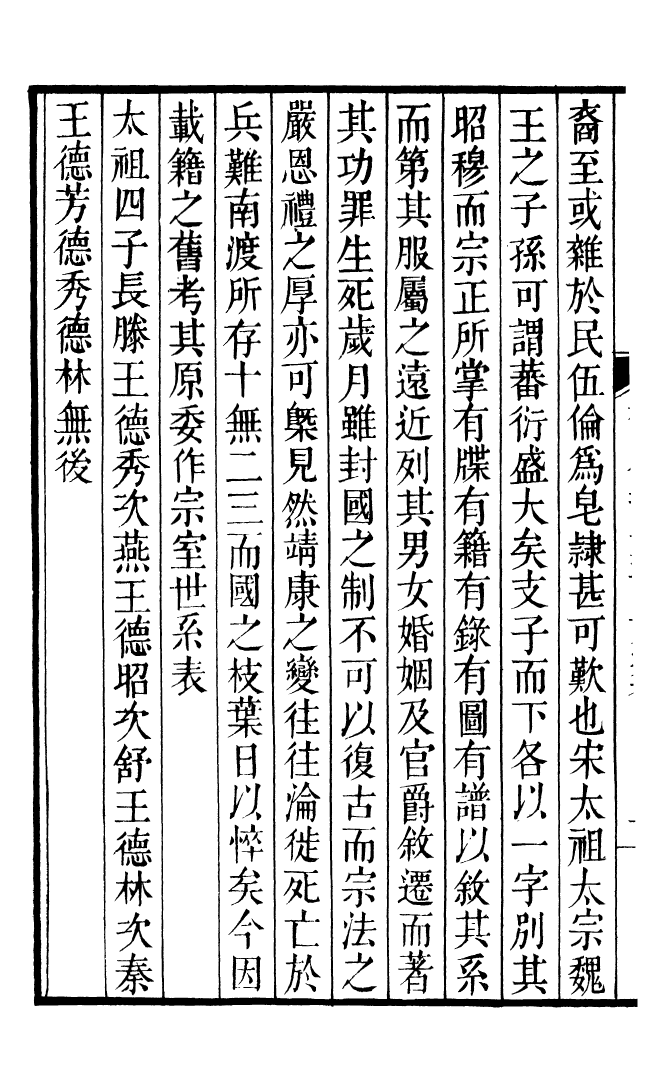 裔至或雜於民伍倫爲皂隷甚可歎也宋太祖太宗魏
王之子孫可謂蕃衍盛大矣支子而下各以一字別其
昭穆而宗正所掌有牒有籍有錄有圖有譜以敘其系
而第其服屬之遠近列其男女婚姻及官爵敘遷而著
其功罪生死歲月雖封國之制不可以復古而宗法之
嚴恩禮之厚亦可槩見然靖康之變往往淪徙死亡於
兵難南渡所存十無二三而國之枝葉日以悴矣今因
載籍之舊考其原委作宗室世系表
太祖四子長滕王德秀次燕王德昭次舒王德林次秦
王德芳德秀德林無後